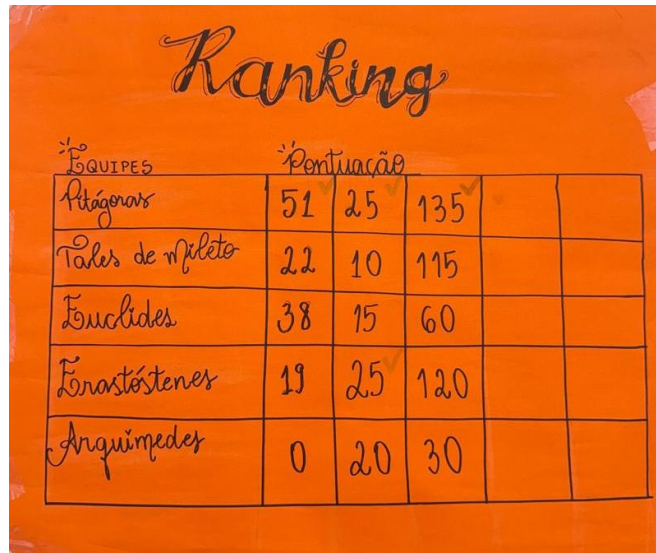 Ranking
EQUIPES Pontuação
Pitágoras 51 25 135
Tales de Mileto 22 10 115
Euclides 38 15 60
Erastóstenes 19 25 120
Arquimedes 0 20 30